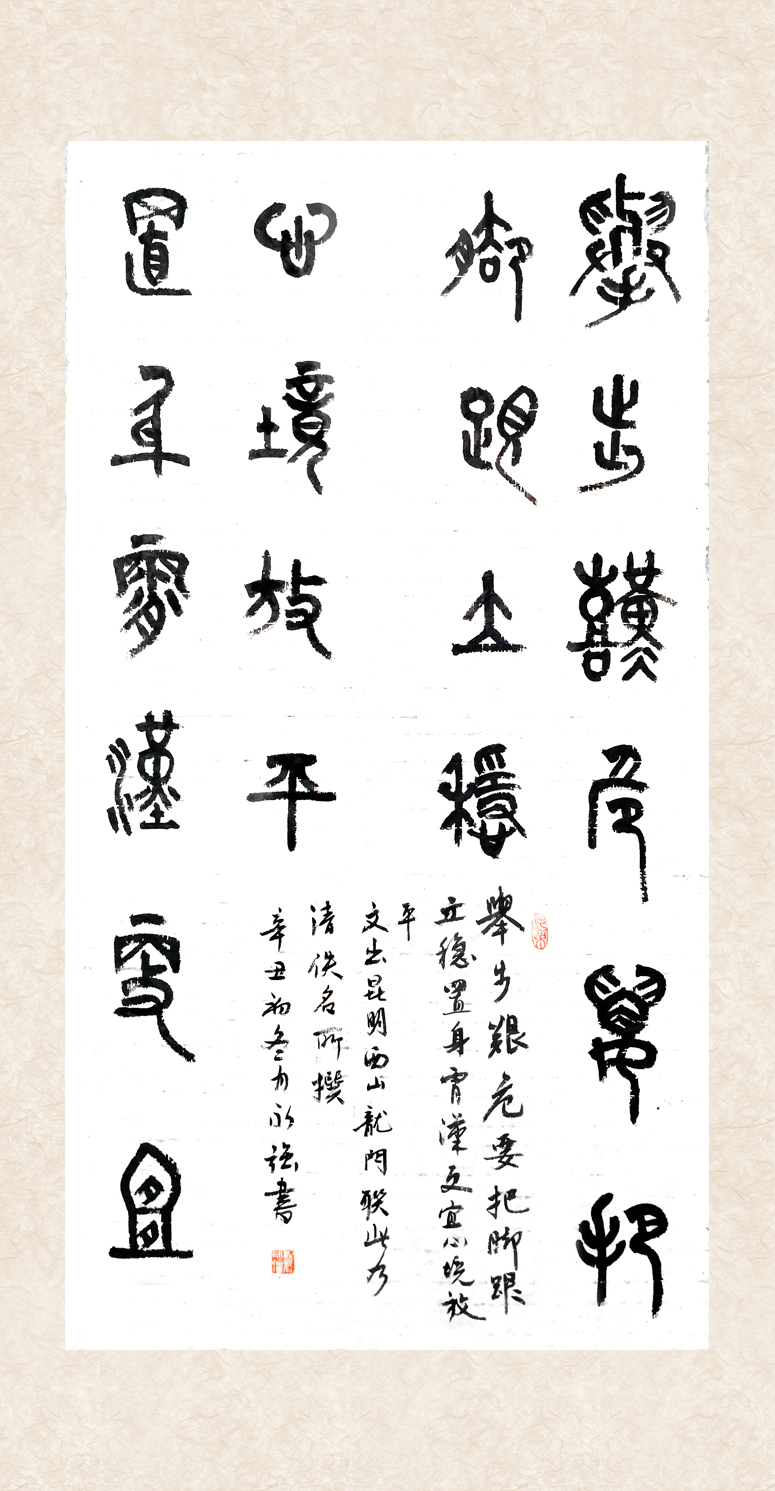 舉步艱危要把
脚跟立穩
心境放平
置身霄漢更宜
舉步艱危要把脚跟
立穩置身霄漢更宜心境放
平
文出昆明西山龍門联此乃
清佚名所撰
辛丑初冬方永强書